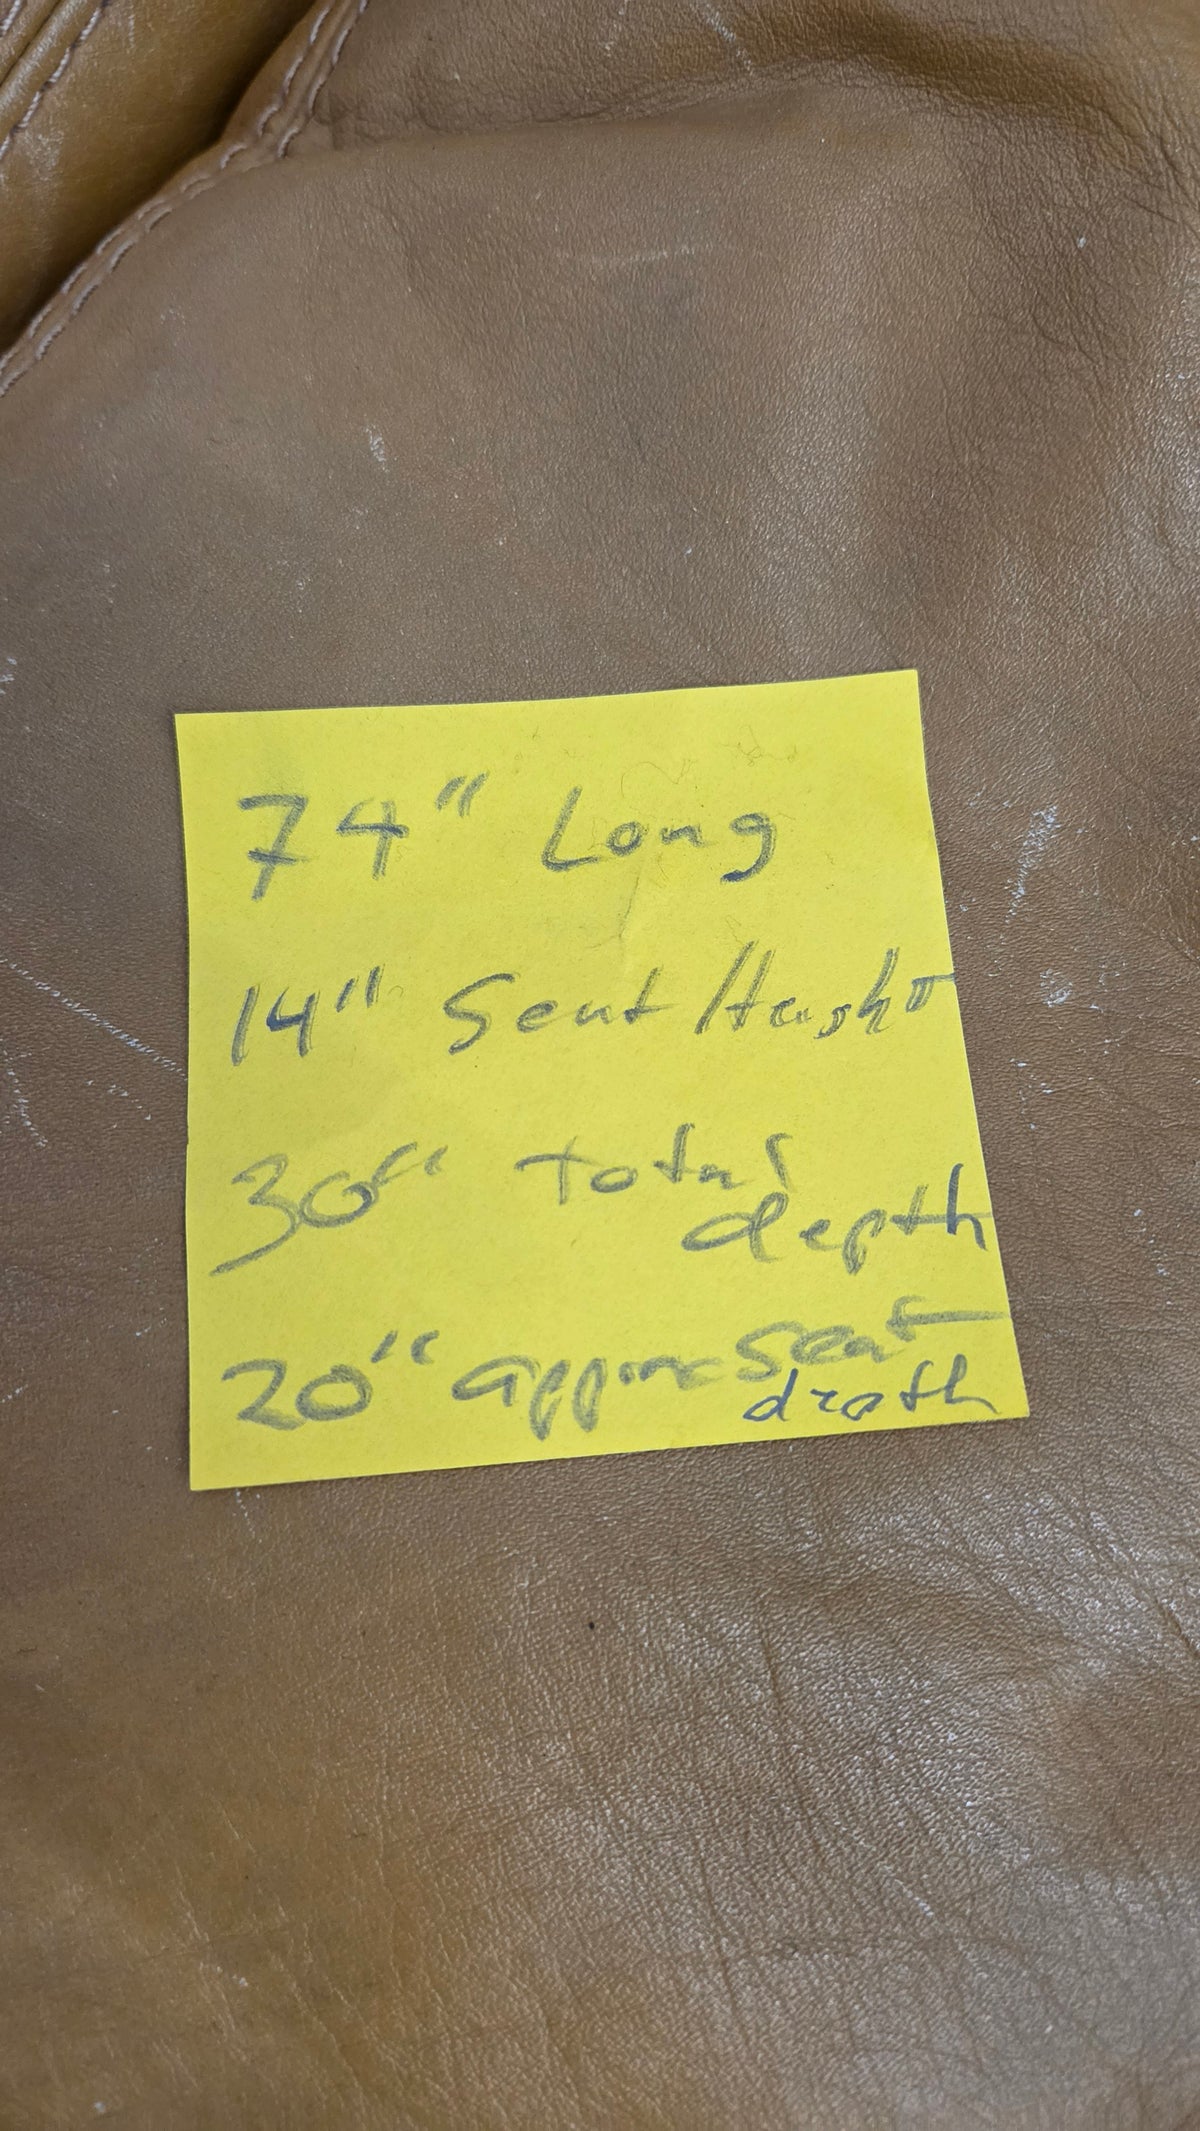 74" Long
14" Seat Height
30" total
depth
20" approx seat
depth